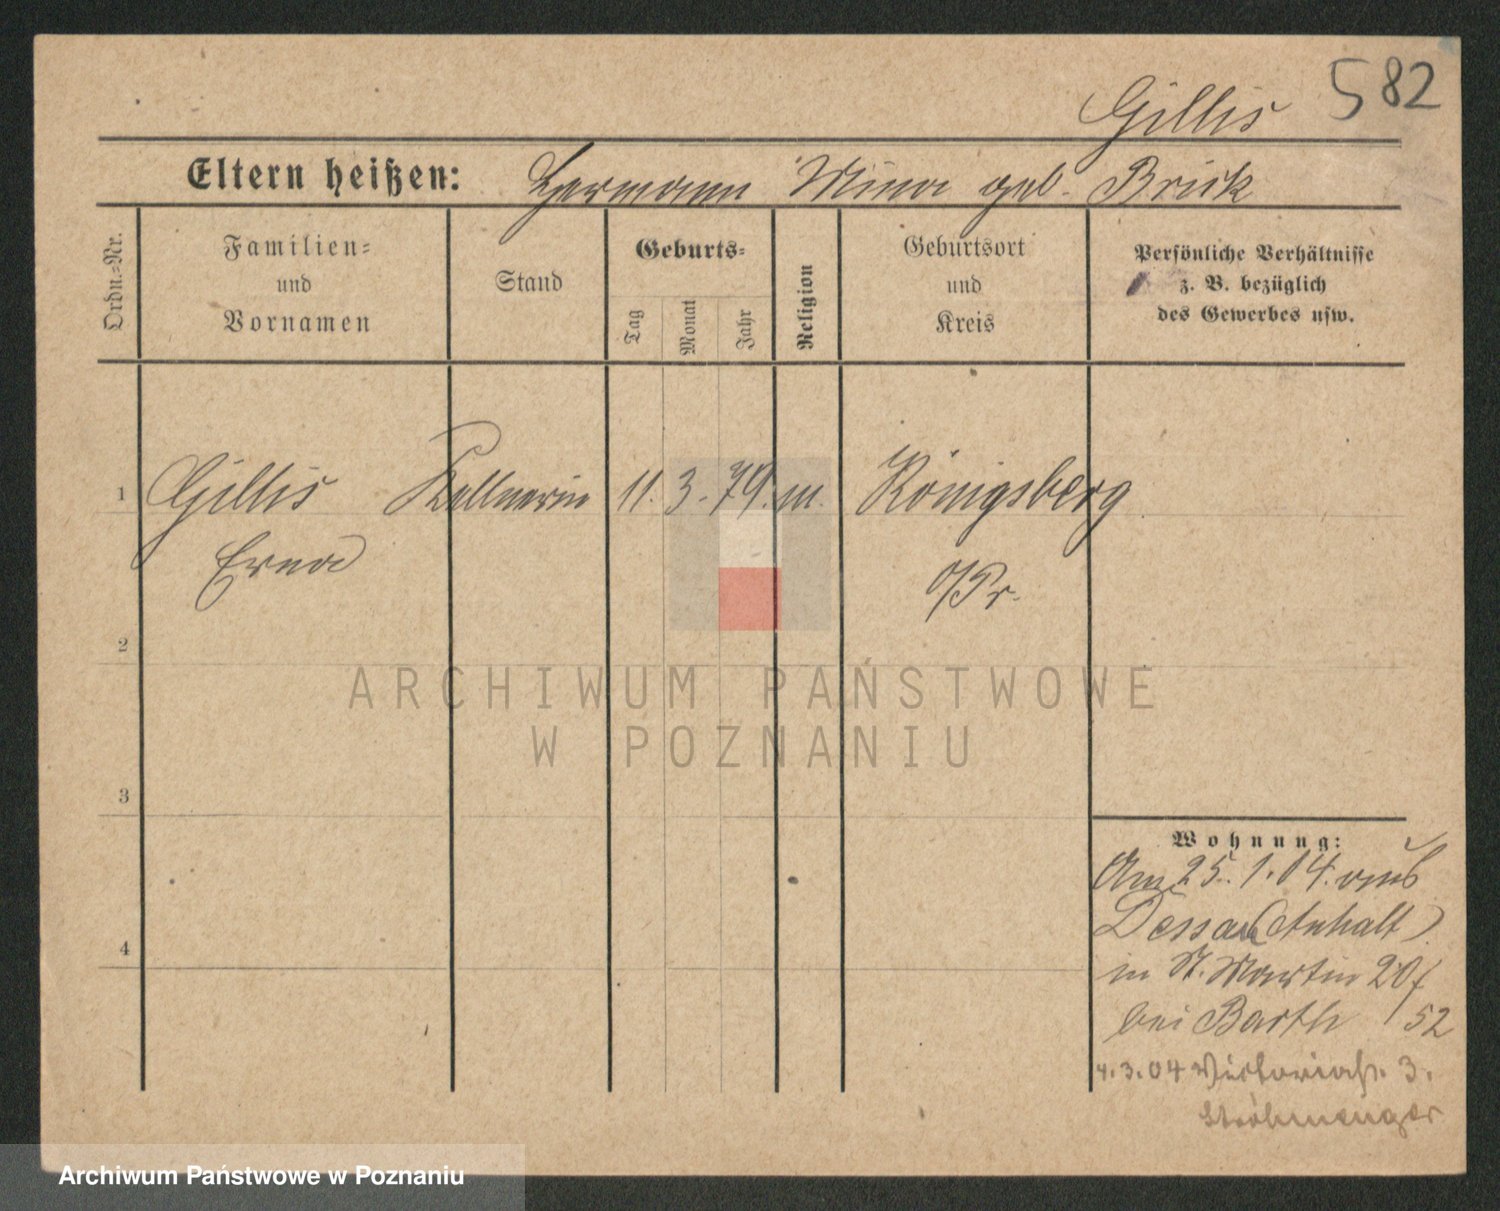 582
Gillis
Eltern heißen: Hermann Mina geb. Brick
Ordn.-Nr.
Familien-
und
Vornamen
Stand
Geburts-
Tag
Monat
Jahr
Religion
Geburtsort
und
Kreis
Persönliche Verhältnisse
z. B. bezüglich
des Gewerbes usw.
1 Gillis Kellnerin 11. 3. 79. m. Königsberg
Erna O/Pr.
2
ARCHIWUM PAŃSTWOWE
W POZNANIU
3
Wohnung:
Am 25.1.04. aus
Dessau (Anhalt)
4
in St. Martin 20/
bei Barth /52
4.3.04 Victoriastr. 3.
Ströhmenger
Archiwum Państwowe w Poznaniu